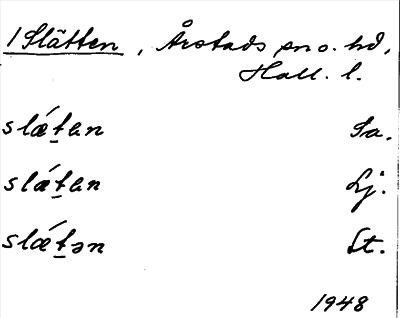 1 Slätten, Årstads sn o. hd,
Hall. l.
slǽt̲ɐn Sa.
slǽt̲ɐn Lj.
slǽt̲ən St.
1948